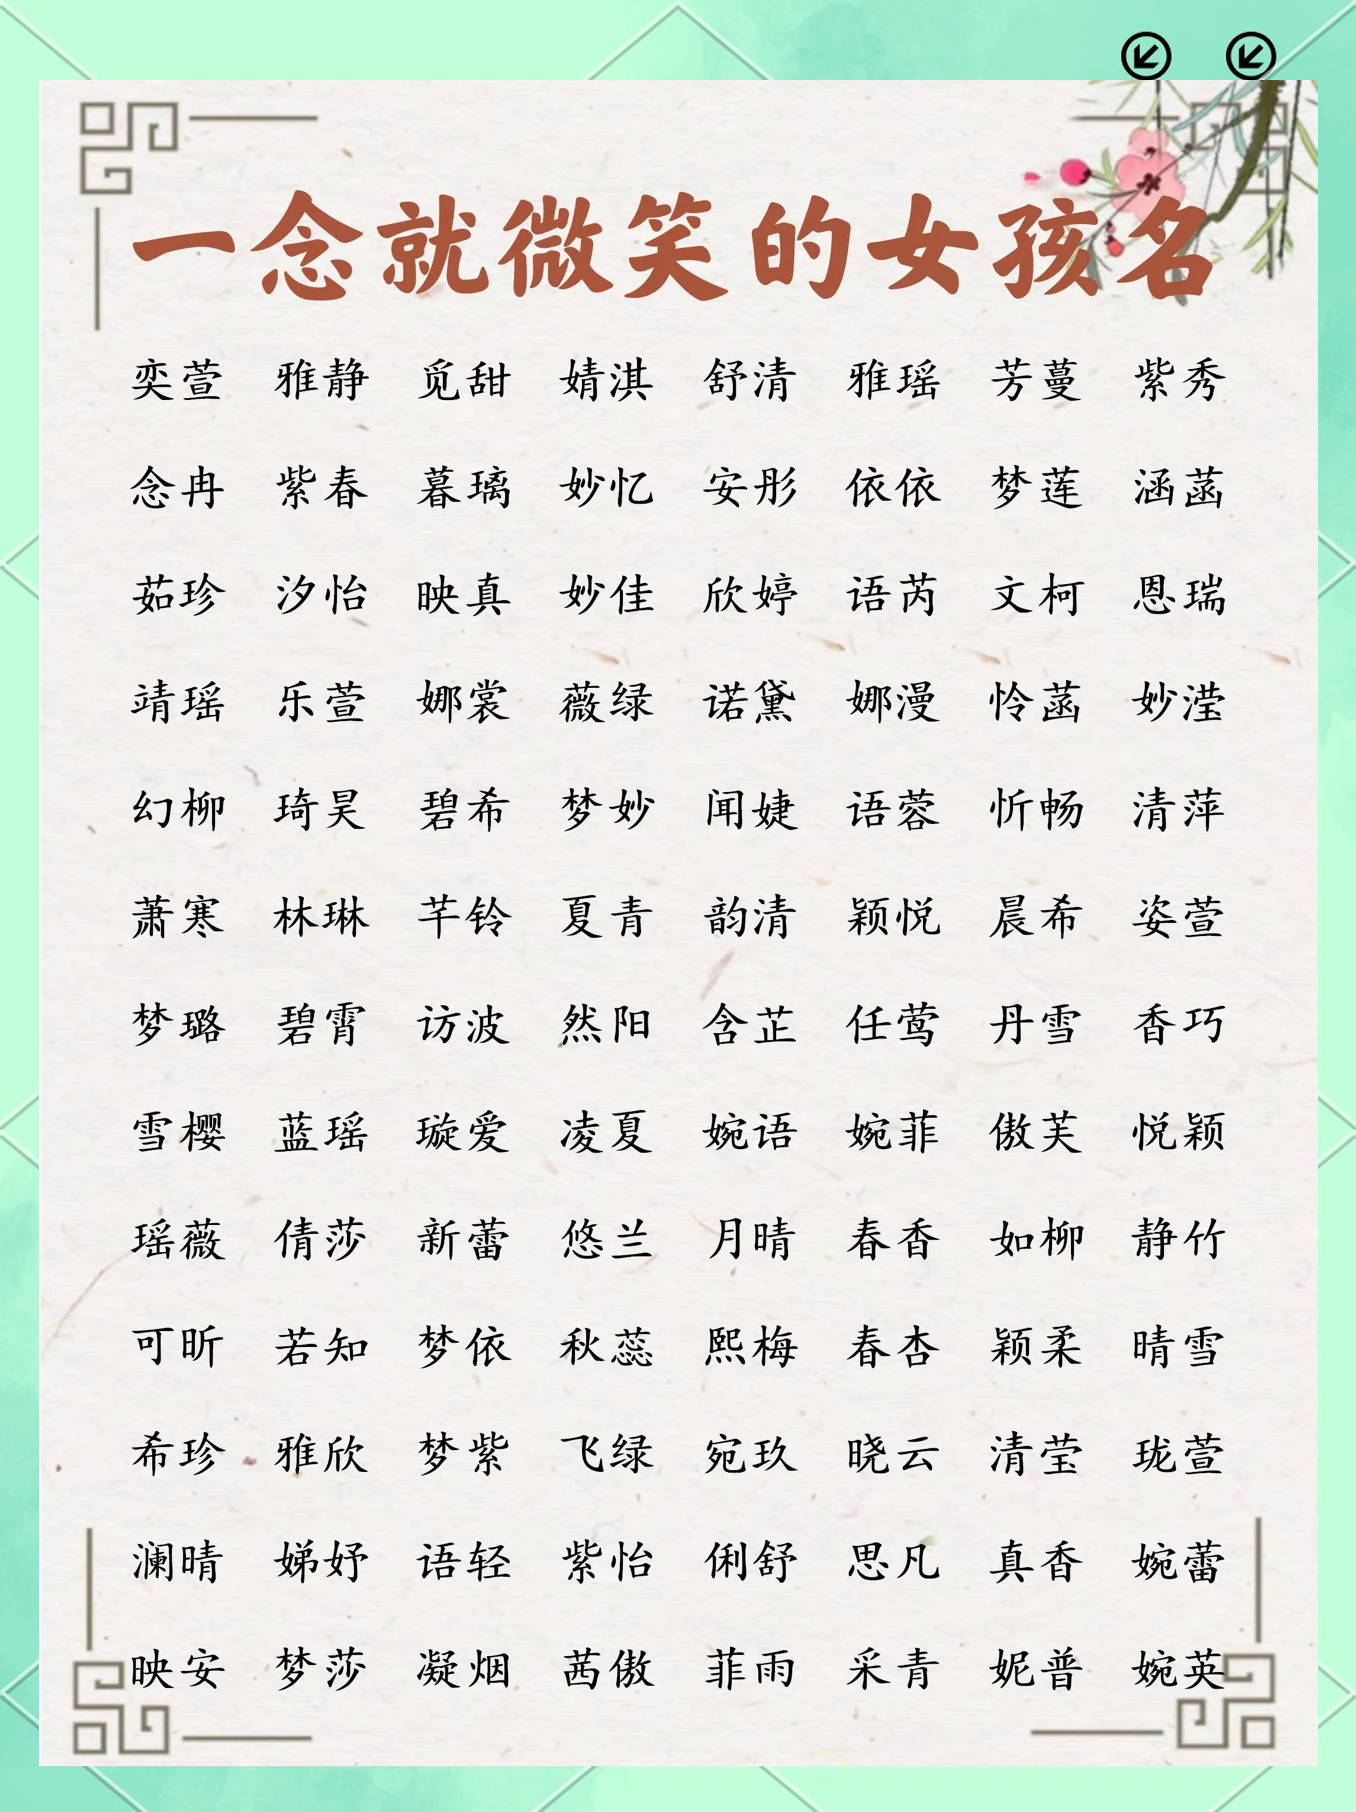 一念就微笑的女孩名
奕萱 雅静 觅甜 婧淇 舒清 雅瑶 芳蔓 紫秀
念冉 紫春 暮璃 妙忆 安彤 依依 梦莲 涵菡
茹珍 汐怡 映真 妙佳 欣婷 语芮 文柯 恩瑞
靖瑶 乐萱 娜裳 薇绿 诺黛 娜漫 怜菡 妙滢
幻柳 琦昊 碧希 梦妙 闻婕 语蓉 忻畅 清萍
萧寒 林琳 芊铃 夏青 韵清 颖悦 晨希 姿萱
梦璐 碧霄 访波 然阳 含芷 任莺 丹雪 香巧
雪樱 蓝瑶 璇爱 凌夏 婉语 婉菲 傲芙 悦颖
瑶薇 倩莎 新蕾 悠兰 月晴 春香 如柳 静竹
可昕 若知 梦依 秋蕊 熙梅 春杏 颖柔 晴雪
希珍 雅欣 梦紫 飞绿 宛玖 晓云 清莹 珑萱
澜晴 娣妤 语轻 紫怡 俐舒 思凡 真香 婉蕾
映安 梦莎 凝烟 茜傲 菲雨 采青 妮普 婉英